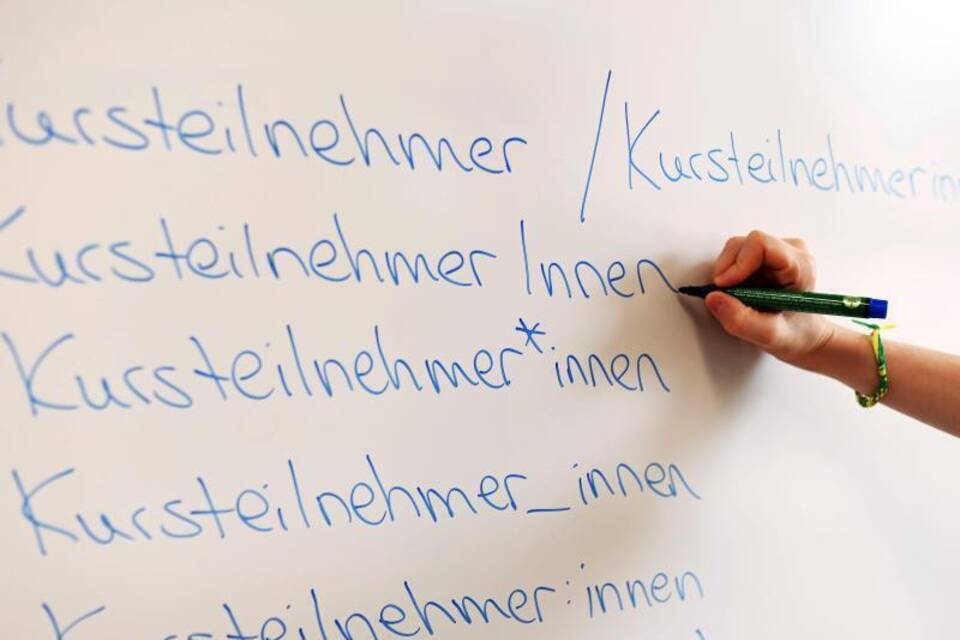 Kursteilnehmer / Kursteilnehmerinn
KursteilnehmerInnen
Kursteilnehmer*innen
Kursteilnehmer_innen
Kursteilnehmer:innen